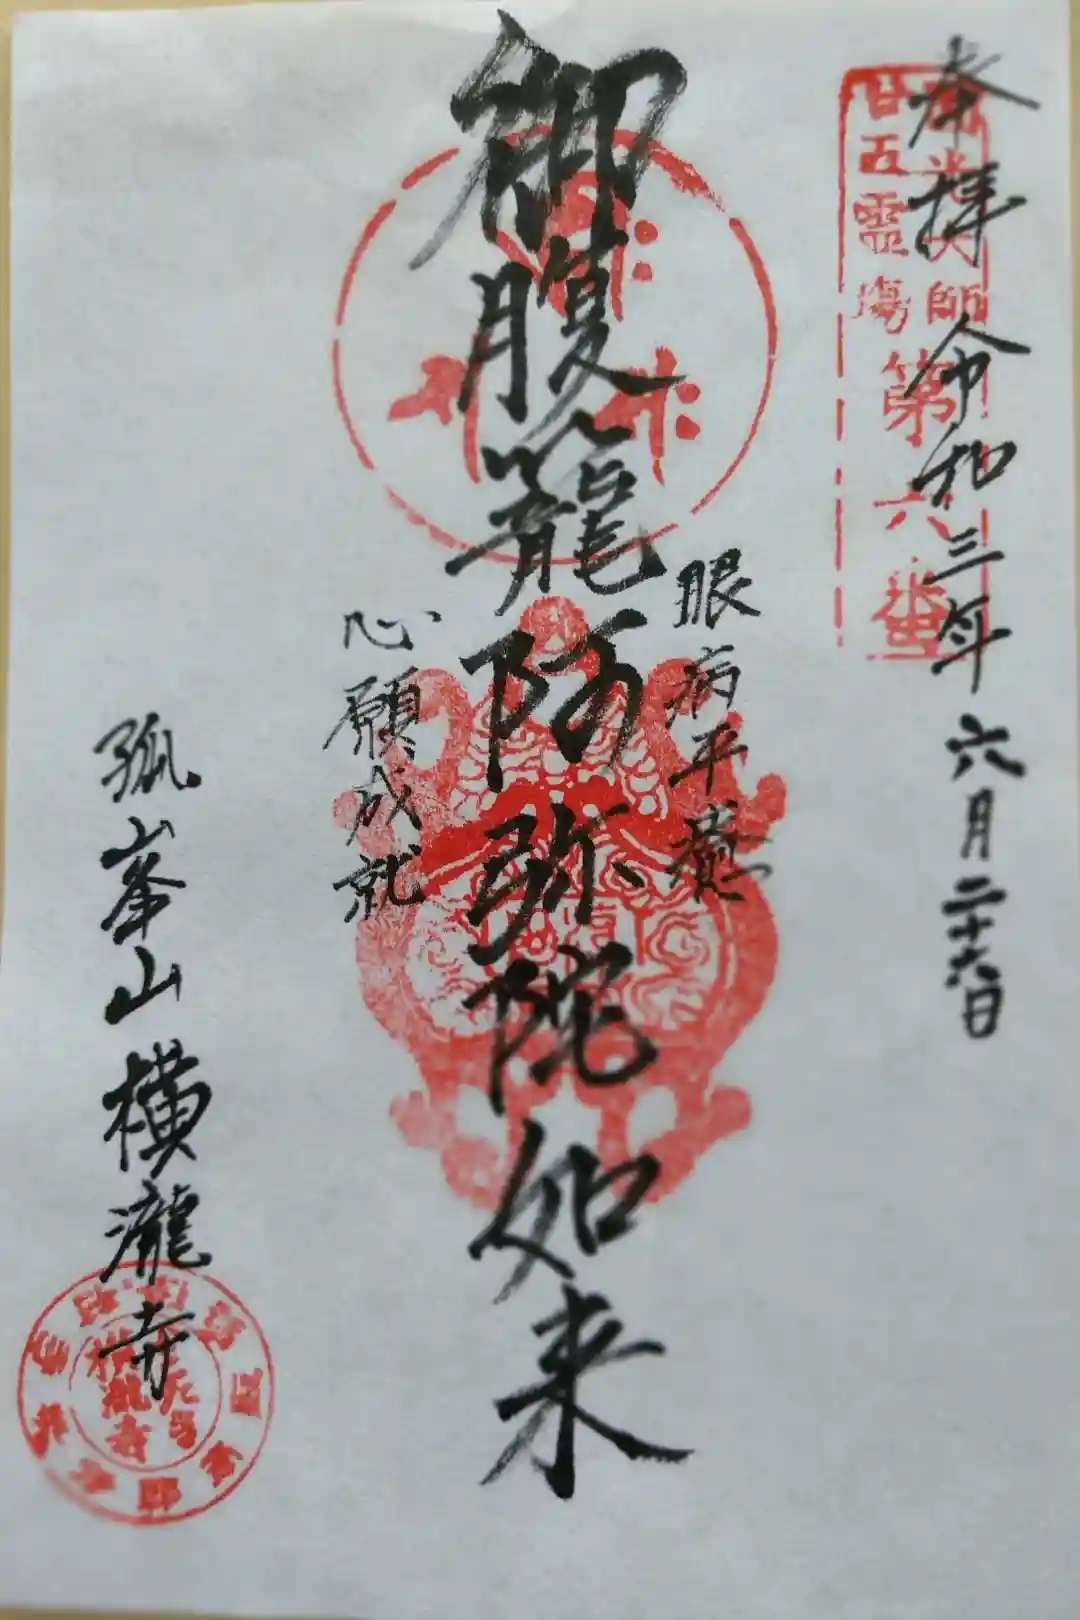 奉拝 令和三年 六月二十六日
廿五霊場
第六番
御腹籠阿弥陀如来
眼病平癒
心願成就
孤峯山 横瀧寺